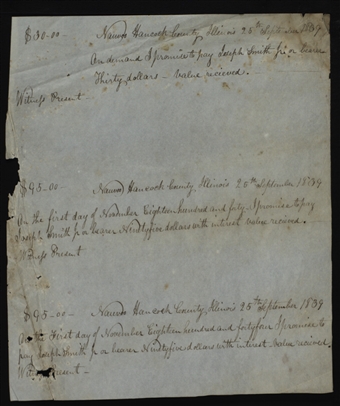 $30.00 - Nauvoo Hancock County, Illinois 25th September 1839
On demand I promise to pay Joseph Smith jr. or bearer
Thirty dollars - value recieved.
Witness Present
$95-00 Nauvoo Hancock County, Illinois 25th September 1839
On the first day of November Eighteen hundred and forty I promise to pay
Joseph Smith jr or bearer Ninetyfive dollars with interest value recieved.
Witness Present
$95.00 - Nauvoo Hancock County, Illinois 25th September 1839
On the First day of November Eighteen hundred and fortyfour I promise to
pay Joseph Smith jr or bearer Ninetyfive dollars with interest value recieved
Witness Present -